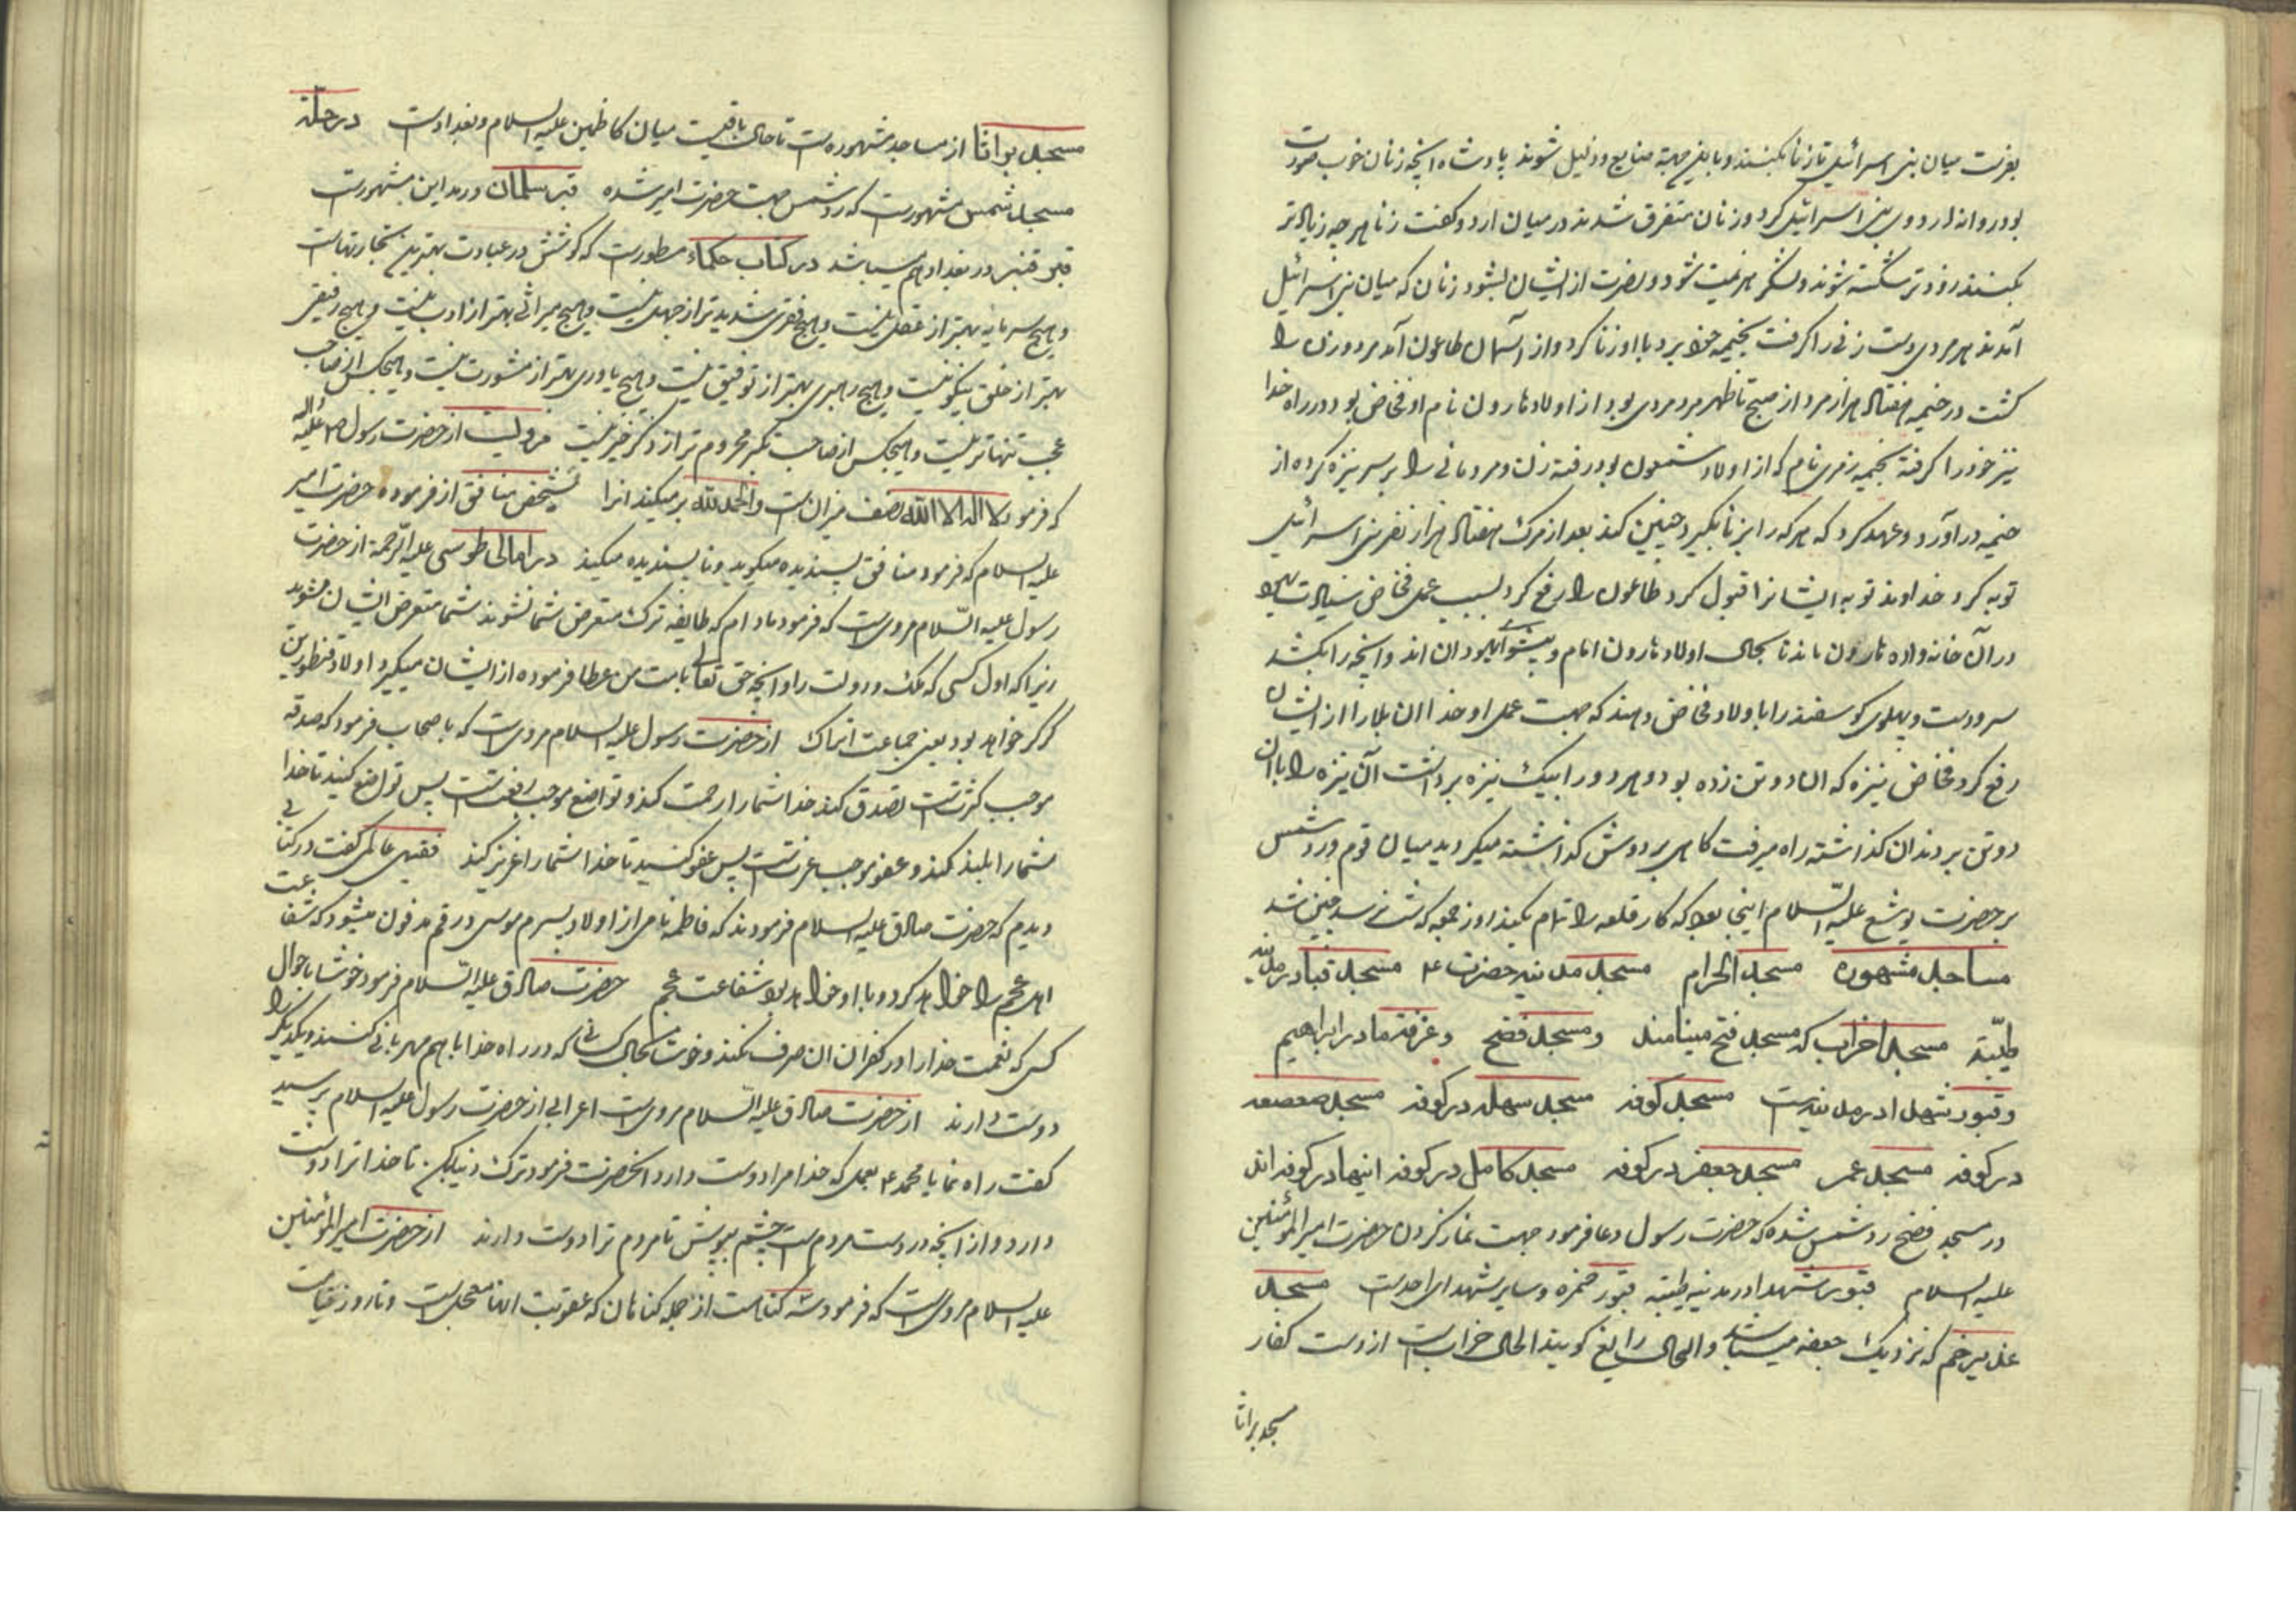 بفرست میان بنی اسرائیل تا زنا بکنند و باین جهة ضایع و ذلیل شوند پادشاه انچه زنان خوب صورت
بود روانه اردوی بنی اسرائیل کرد و زنان متفرق شدند در میان اردو و گفت زنا هر چه زیادتر
بکنند زودتر شکسته شوند و لشکر هزیمت شود و نصرت از ایشان بشود زنان که میان بنی اسرائیل
آمدند هر مردی دست زنی را گرفت بخیمه خود برد با او زنا کرد و از آسمان طاعون آمد مرد و زن را
کشت در خیمه هفتاد هزار مرد از صبح تا ظهر مرد مردی بود از اولاد هارون نام او فخاض بود در راه خدا
نیز خود را گرفته بخیمه زمری نام که از اولاد شمعون بود رفته زن و مرد زانی را بر سر نیزه کرده از
خیمه در آورد و عهد کرد که هر که را بزنا بگیرد چنین کند بعد از مرگ هفتاد هزار نفر بنی اسرائیل
توبه کرد خداوند توبه ایشانرا قبول کرد طاعون را رفع کرد بسبب عمل فخاض سیادت یهود
در آن خانه واده هارون ماند تا بحال اولاد هارون امام و پیشوای یهودان اند و انچه را بکشند
سر و دست و پهلوی گوسفند را باولاد فخاض دهند که جهت عمل او خدا ان بلا را از ایشان
رفع کرد فخاض نیزه که ان دو تن زده بود و هر دو را بیک نیزه برداشت آن نیزه را با ان
دو تن بر دندان گذاشته راه میرفت گاهی بر دوش گذاشته میگردید میان قوم و رد شمس
بر حضرت یوشع علیه السلام اینجا بود که کار قلعه را تمام بکند روز جمعه که شب نرسد چنین شد
مساجد مشهوره مسجد الحرام مسجد مدینه حضرت ع مسجد قبا در مدینه
طیبة مسجد احزاب که مسجد فتح مینامند و مسجد فضح و غرفه مادر ابراهیم
و قبور شهدا در مدینه است مسجد کوفه مسجد سهله در کوفه مسجد صعصعه
در کوفه مسجد عمر مسجد جعفر در کوفه مسجد کامل در کوفه اینها در کوفه اند
در مسجد فضح رد شمس شده که حضرت رسول دعا فرمود جهت نماز کردن حضرت امیر المؤمنین
علیه السلام قبور شهدا در مدینه طیبه قبور حمزه و سایر شهدای احدست مسجد
غدیر خم که نزدیک جحفه میباشد و الحال رابغ گویند الحال خرابست از دست کفار
مسجد براثا
مسجد براثا از مساجد مشهوره است تا حال باقیست میان کاظمین علیه السلام و بغداد است در حله
مسجد شمس مشهورست که رد شمس جهت حضرت امیر شده قبر سلمان در مداین مشهورست
قبر قنبر در بغداد هم میباشد در کتاب حکماء مسطورست که کوشش در عبادت بهترین تجارتهاست
و هیچ سرمایه بهتر از عقل نیست و هیچ فقری شدیدتر از جهل نیست و هیچ میراثی بهتر از ادب نیست و هیچ رفیقی
بهتر از خلق نیکو نیست و هیچ رهبری بهتر از توفیق نیست و هیچ یاوری بهتر از مشورت نیست و هیچکس از صاحب
عجب تنهاتر نیست و هیچکس از صاحب تکبر محروم تر از ذکر خیر نیست مرویست از حضرت رسول ص علیه واله
که فرمود لا اله الا الله نصف میزان است والحمد لله پر میکند انرا تشخص منافق از فرموده حضرت امیر
علیه السلام که فرمود منافق پسندیده میگوید و ناپسندیده میکند در امالی طوسی علیه الرحمة از حضرت
رسول علیه السلام مرویست که فرمود مادام که طایفه ترک متعرض شما نشوند شما متعرض ایشان مشوید
زیرا که اول کسی که ملک و دولت را و انچه حق تعالی بامت من عطا فرموده از ایشان میگیرد اولاد قنطور بن
کرکر خواهد بود یعنی جماعت اتراک از حضرت رسول علیه السلام مرویست که باصحاب فرمود که صدقه
موجب کثرتست تصدق کنید خدا شما را رحمت کند و تواضع موجب رفعتست پس تواضع کنید تا خدا
شما را بلند کند و عفو موجب عزتست پس عفو کنید تا خدا شما را عزیز کند فقیهی عالمی گفت در کتابی
دیدم که حضرت صادق علیه السلام فرمودند که فاطمه نامی از اولاد پسرم موسی در قم مدفون میشود که شفاعت
اهل عجم را خواهد کرد و با او خواهد بود شفاعت عجم حضرت صادق علیه السلام فرمود خوشا باحوال
کسی که نعمت خدا را در کفران ان صرف نکند و خوشا بحال کسانی که در راه خدا با هم مهربانی کنند و یکدیگر را
دوست دارند از حضرت صادق علیه السلام مرویست اعرابی از حضرت رسول علیه السلام پرسید
گفت راه نما یا محمد ع بعملی که خدا مرا دوست دارد انحضرت فرمود ترک دنیا بکن تا خدا ترا دوست
دارد و از انچه در دست مردم است چشم بپوش تا مردم ترا دوست دارند از حضرت امیر المؤمنین
علیه السلام مرویست که فرمود سه گناهست از جمله گناهان که عقوبت انها معجل است و تا روز قیامت